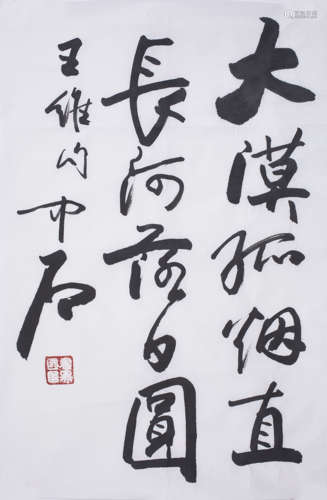 大漠孤烟直
長河落日圓
王维句 中石